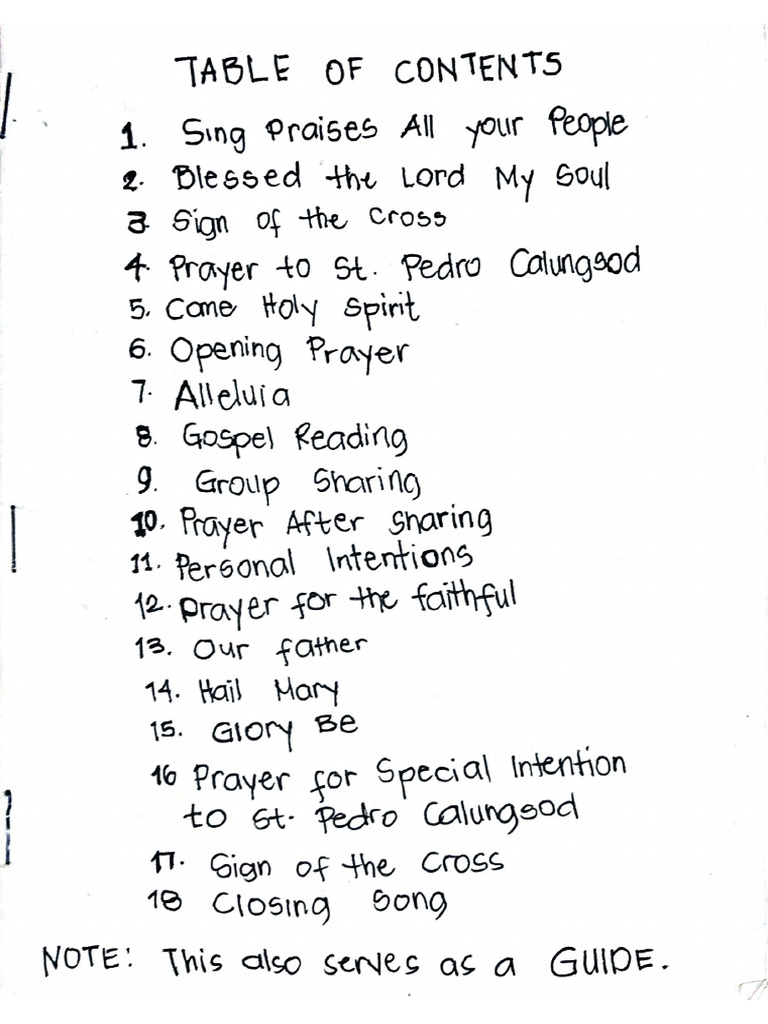 TABLE OF CONTENTS
1. Sing Praises All your People
2. Blessed the Lord My Soul
3 Sign of the Cross
4. Prayer to St. Pedro Calungsod
5. Come Holy Spirit
6. Opening Prayer
7. Alleluia
8. Gospel Reading
9. Group Sharing
10. Prayer After Sharing
11. Personal Intentions
12. Prayer for the faithful
13. Our father
14. Hail Mary
15. Glory Be
16 Prayer for Special Intention
to St. Pedro Calungsod
17. Sign of the Cross
18 Closing Song
NOTE: This also serves as a GUIDE.